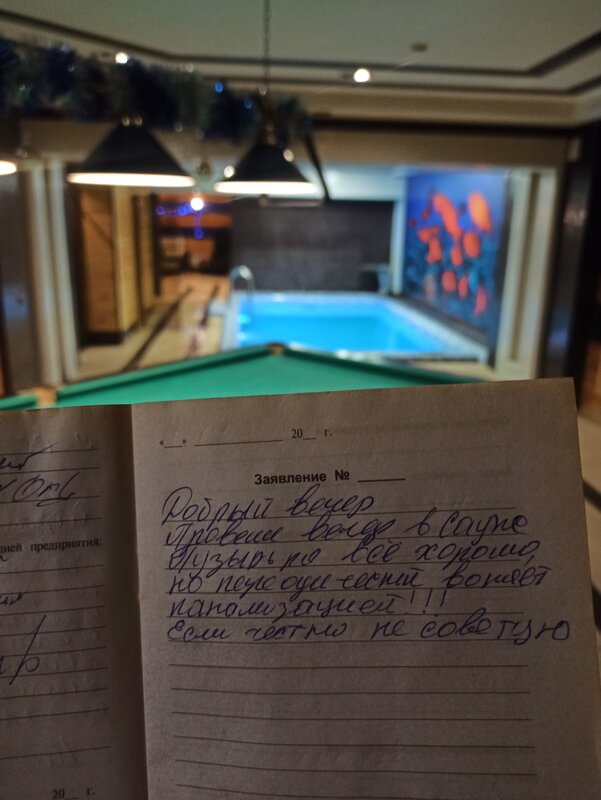 «__» ____________ 20__ г.
Заявление № ______
Добрый вечер
Провели вечер в сауне
Пузырь ра всё хорошо,
но переодический воняет
канализацией!!!
Если честно не советую
предприятия:
20__ г.